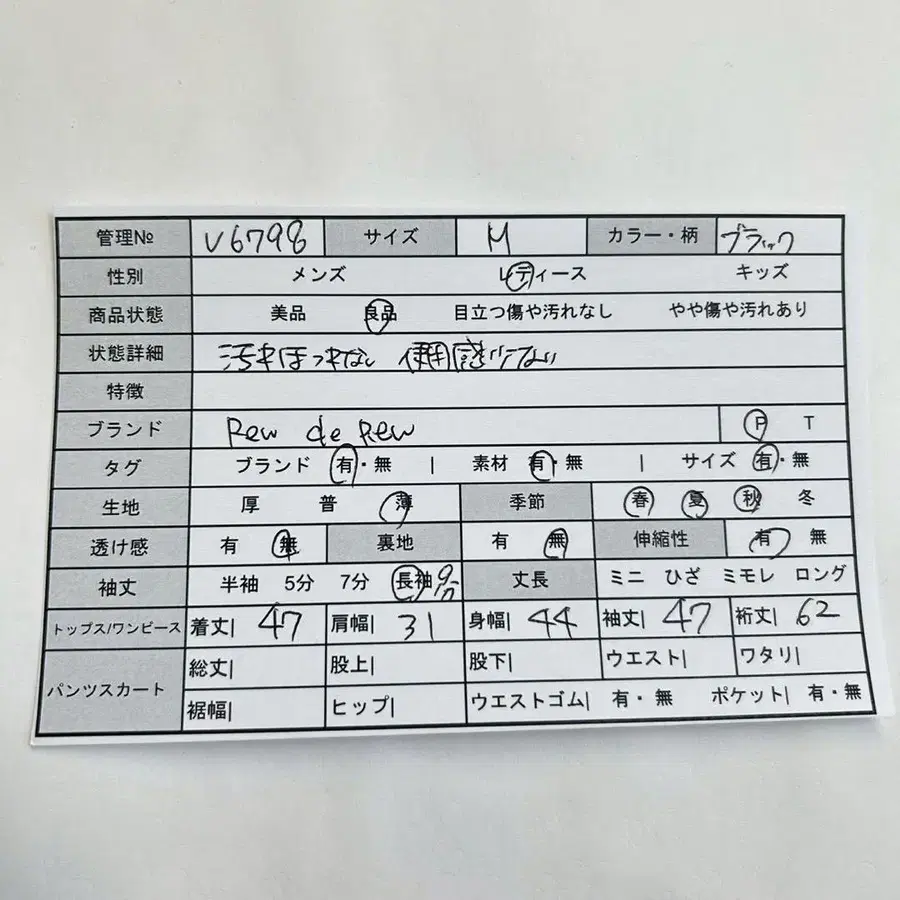 管理№ V6798 サイズ M カラー・柄 ブラック
性別 メンズ レディース キッズ
商品状態 美品 良品 目立つ傷や汚れなし やや傷や汚れあり
状態詳細 汚れほつれなし 使用感少ない
特徴
ブランド Rew de Rew P T
タグ ブランド 有・無 | 素材 有・無 | サイズ 有・無
生地 厚 普 薄 季節 春 夏 秋 冬
透け感 有 無 裏地 有 無 伸縮性 有 無
袖丈 半袖 5分 7分 長袖 9分 丈長 ミニ ひざ ミモレ ロング
トップス/ワンピース 着丈| 47 肩幅| 31 身幅| 44 袖丈| 47 裄丈| 62
パンツスカート 総丈| 股上| 股下| ウエスト| ワタリ|
裾幅| ヒップ| ウエストゴム| 有・無 ポケット| 有・無